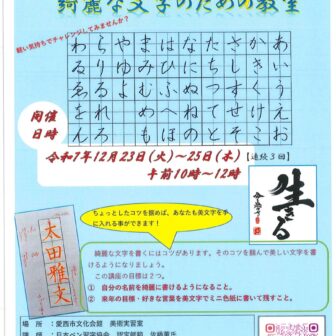 綺麗な文字のための教室
軽い気持ちでチャレンジしてみませんか?
わらやまはなたさかあ
りゆみひにちしきい
ゑるよむふぬつすくう
れ めへねてせけえ
んろ もほのとそこお
開催
日時
令和7年12月23日(火)～25日(木)【連続3回】
午前10時～12時
ちょっとしたコツを掴めば、あなたも美文字を手
に入れる事ができます!
生きる
太田雅文
綺麗な文字を書くにはコツがあります。そのコツを掴んで美しい文字を書
けるようになりましょう。
この講座の目標は2つ。
① 自分の名前を綺麗に書けるようになること。
② 来年の目標・好きな言葉を美文字でミニ色紙に書いて残すこと。
場所:愛西市文化会館 美術実習室